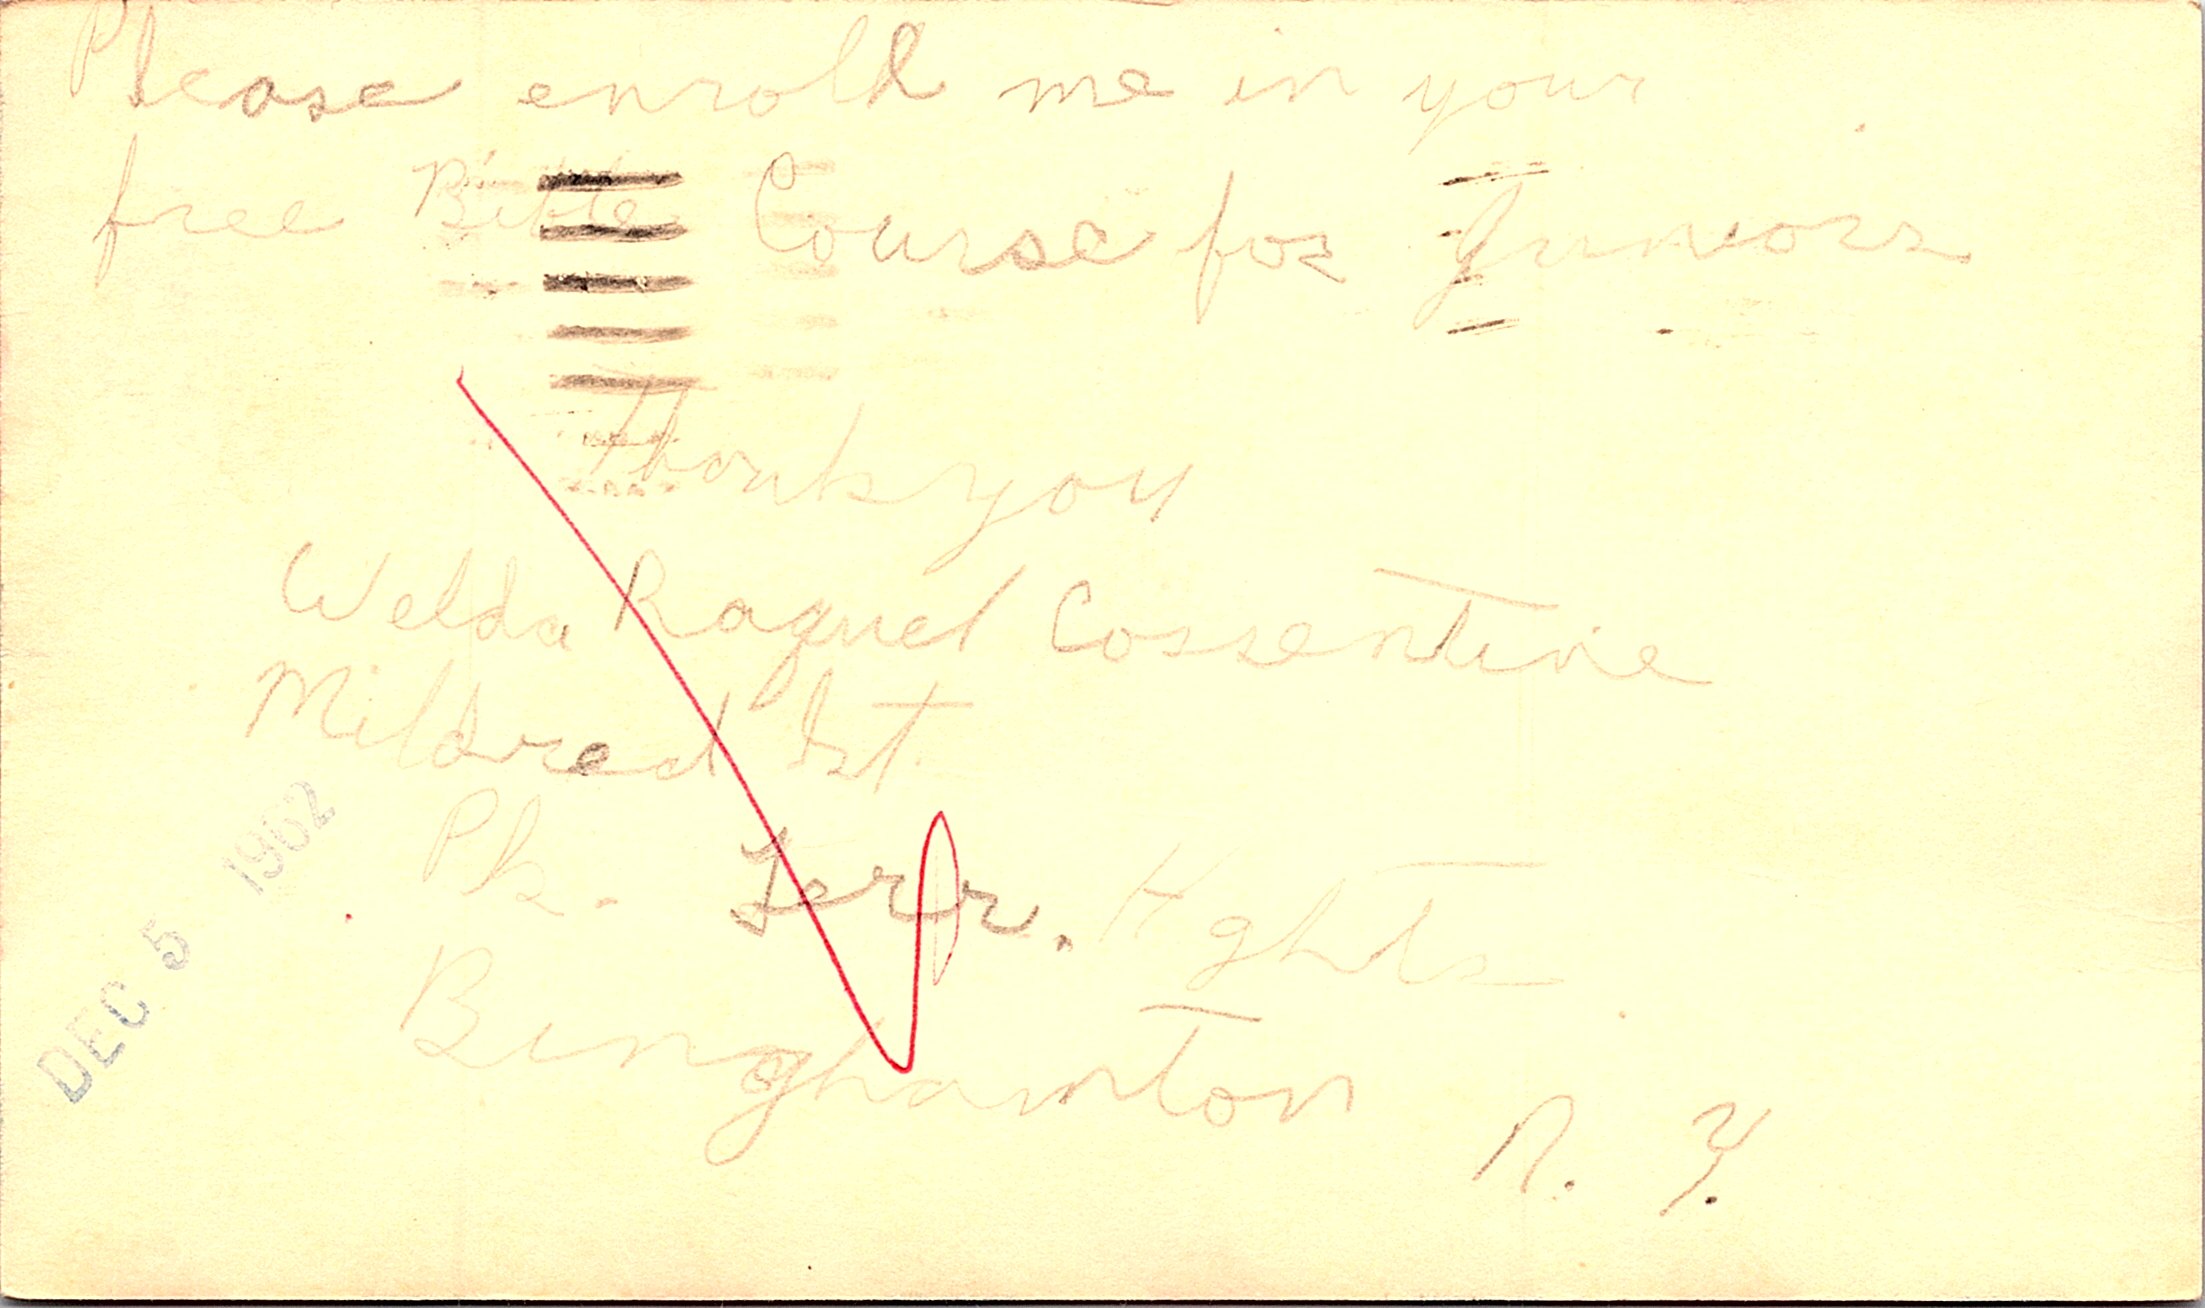 Please enroll me in your
free Bible Course for Juniors
Thank you
Welda Raquel Cossentine
Mildred St.
Pk. Terr. Hghts
Binghamton N. Y.
DEC 5 1962